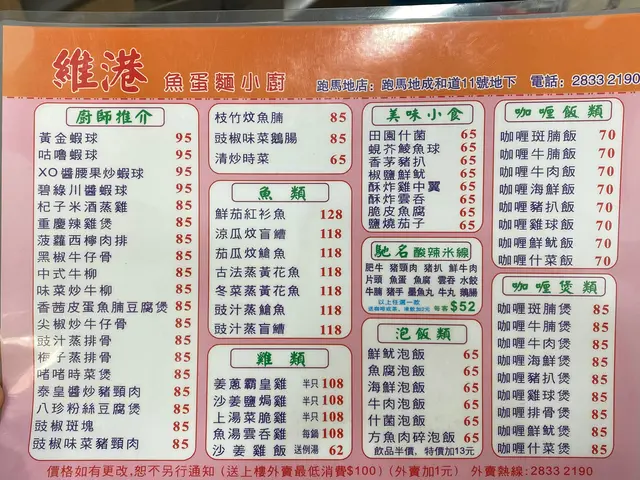 維港 魚蛋麵小廚 跑馬地店：跑馬地成和道11號地下 電話：2833 2190
廚師推介
黃金蝦球 95
咕嚕蝦球 95
XO醬腰果炒蝦球 95
碧綠川醬蝦球 95
杞子米酒蒸雞 85
重慶辣雞煲 85
菠蘿西檸肉排 85
黑椒牛仔骨 85
中式牛柳 85
味菜炒牛柳 85
香茜皮蛋魚腩豆腐煲 85
尖椒炒牛仔骨 85
豉汁蒸排骨 85
梅子蒸排骨 85
啫啫時菜煲 85
泰皇醬炒豬頸肉 85
八珍粉絲豆腐煲 85
豉椒斑塊 85
豉椒味菜豬頸肉 85
枝竹炆魚腩 85
豉椒味菜鵝腸 85
清炒時菜 65
魚類
鮮茄紅衫魚 128
涼瓜炆盲鰽 118
茄瓜炆鱠魚 118
古法蒸黃花魚 118
冬菜蒸黃花魚 118
豉汁蒸鱠魚 118
豉汁蒸盲鰽 118
雞類
姜蔥霸皇雞 半只 108
沙姜鹽焗雞 半只 108
上湯菜脆雞 半只 108
魚湯雲吞雞 每鍋 108
沙姜雞飯 送例湯 62
美味小食
田園什菌 65
蜆芥鯪魚球 65
香茅豬扒 65
椒鹽鮮魷 65
酥炸雞中翼 65
酥炸雲吞 65
脆皮魚腐 65
鹽燒茄子 65
馳名酸辣米線
肥牛 豬頸肉 豬扒 鮮牛肉
片頭 魚蛋 魚腐 雲吞 水餃
牛腩 豬手 墨魚丸 牛丸 鵝腸
以上任選一款
每客$52
泡飯類
鮮魷泡飯 65
魚腐泡飯 65
海鮮泡飯 65
牛肉泡飯 65
什菌泡飯 65
方魚肉碎泡飯 65
飲品半價，特價加13元
咖喱飯類
咖喱斑腩飯 70
咖喱牛腩飯 70
咖喱牛肉飯 70
咖喱海鮮飯 70
咖喱豬扒飯 70
咖喱雞球飯 70
咖喱鮮魷飯 70
咖喱什菜飯 70
咖喱煲類
咖喱斑腩煲 85
咖喱牛腩煲 85
咖喱牛肉煲 85
咖喱海鮮煲 85
咖喱豬扒煲 85
咖喱雞球煲 85
咖喱排骨煲 85
咖喱鮮魷煲 85
咖喱什菜煲 85
價格如有更改,恕不另行通知（送上樓外賣最低消費$100）（外賣加1元） 外賣熱線:2833 2190